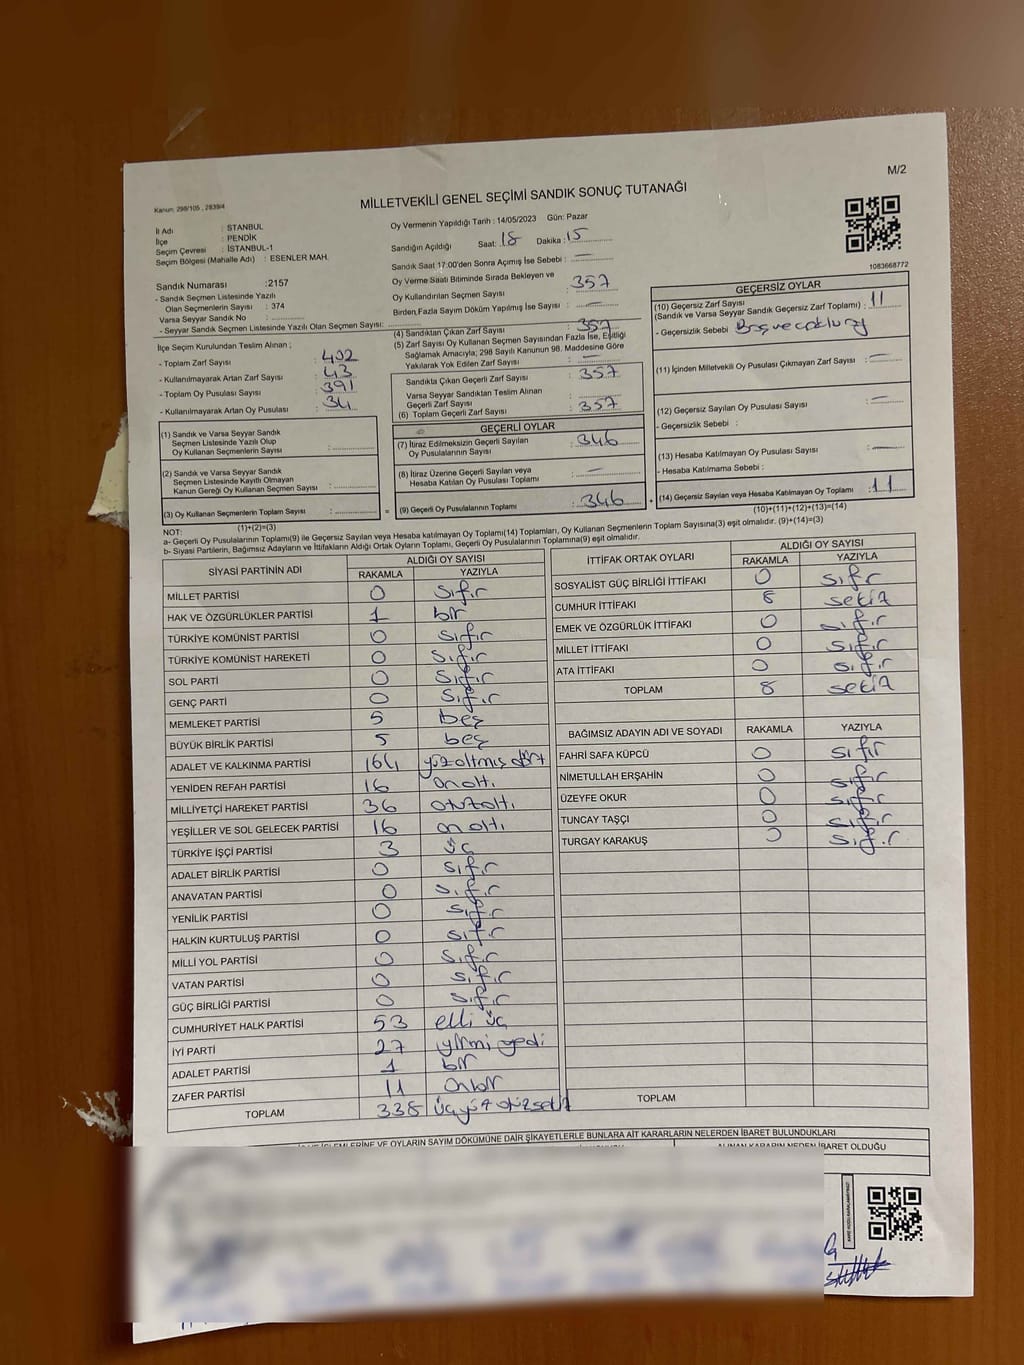 M/2
Kanun: 298/105 , 2839/4
MİLLETVEKİLİ GENEL SEÇİMİ SANDIK SONUÇ TUTANAĞI
İl Adı : STANBUL
İlçe : PENDİK
Seçim Çevresi : İSTANBUL-1
Seçim Bölgesi (Mahalle Adı) : ESENLER MAH.
Oy Vermenin Yapıldığı Tarih : 14/05/2023 Gün: Pazar
Sandığın Açıldığı Saat: 18 Dakika : 15
Sandık Saat 17:00'den Sonra Açımış İse Sebebi : —
Oy Verme Saati Bitiminde Sırada Bekleyen ve
Oy Kullandırılan Seçmen Sayısı 357
Birden Fazla Sayım Dökümü Yapılmış İse Sayısı : —
1083668772
Sandık Numarası :2157
- Sandık Seçmen Listesinde Yazılı
Olan Seçmenlerin Sayısı : 374
Varsa Seyyar Sandık No :
- Seyyar Sandık Seçmen Listesinde Yazılı Olan Seçmen Sayısı:
İlçe Seçim Kurulundan Teslim Alınan ;
- Toplam Zarf Sayısı : 402
- Kullanılmayarak Artan Zarf Sayısı : 43
- Toplam Oy Pusulası Sayısı : 391
- Kullanılmayarak Artan Oy Pusulası : 34
(1) Sandık ve Varsa Seyyar Sandık
Seçmen Listesinde Yazılı Olup
Oy Kullanan Seçmenlerin Sayısı :
(2) Sandık ve Varsa Seyyar Sandık
Seçmen Listesinde Kayıtlı Olmayan
Kanun Gereği Oy Kullanan Seçmen Sayısı :
(3) Oy Kullanan Seçmenlerin Toplam Sayısı :
(1)+(2)=(3)
(4) Sandıktan Çıkan Zarf Sayısı : 357
(5) Zarf Sayısı Oy Kullanan Seçmen Sayısından Fazla İse, Eşitliği
Sağlamak Amacıyla; 298 Sayılı Kanunun 98. Maddesine Göre
Yakılarak Yok Edilen Zarf Sayısı : —
Sandıkta Çıkan Geçerli Zarf Sayısı : 357
Varsa Seyyar Sandıktan Teslim Alınan
Geçerli Zarf Sayısı
(6) Toplam Geçerli Zarf Sayısı : 357
GEÇERLİ OYLAR
(7) İtiraz Edilmeksizin Geçerli Sayılan
Oy Pusulalarının Sayısı : 346
(8) İtiraz Üzerine Geçerli Sayılan veya
Hesaba Katılan Oy Pusulası Toplamı : —
(9) Geçerli Oy Pusulalarının Toplamı : 346
GEÇERSİZ OYLAR
(10) Geçersiz Zarf Sayısı
(Sandık ve Varsa Seyyar Sandık Geçersiz Zarf Toplamı) : 11
- Geçersizlik Sebebi
(11) İçinden Milletvekili Oy Pusulası Çıkmayan Zarf Sayısı : —
(12) Geçersiz Sayılan Oy Pusulası Sayısı : —
- Geçersizlik Sebebi :
(13) Hesaba Katılmayan Oy Pusulası Sayısı : —
- Hesaba Katılmama Sebebi :
(14) Geçersiz Sayılan veya Hesaba Katılmayan Oy Toplamı : 11
(10)+(11)+(12)+(13)=(14)
NOT:
a- Geçerli Oy Pusulalarının Toplamı(9) ile Geçersiz Sayılan veya Hesaba katılmayan Oy Toplamı(14) Toplamları, Oy Kullanan Seçmenlerin Toplam Sayısına(3) eşit olmalıdır. (9)+(14)=(3)
b- Siyasi Partilerin, Bağımsız Adayların ve İttifakların Aldığı Ortak Oyların Toplamı, Geçerli Oy Pusulalarının Toplamına(9) eşit olmalıdır.
SİYASİ PARTİNİN ADI ALDIĞI OY SAYISI
RAKAMLA YAZIYLA
MİLLET PARTİSİ 0 sıfır
HAK VE ÖZGÜRLÜKLER PARTİSİ 1 bir
TÜRKİYE KOMÜNİST PARTİSİ 0 sıfır
TÜRKİYE KOMÜNİST HAREKETİ 0 sıfır
SOL PARTİ 0 sıfır
GENÇ PARTİ 0 sıfır
MEMLEKET PARTİSİ 5 beş
BÜYÜK BİRLİK PARTİSİ 5 beş
ADALET VE KALKINMA PARTİSİ 164 yüzaltmış dört
YENİDEN REFAH PARTİSİ 16 onaltı
MİLLİYETÇİ HAREKET PARTİSİ 36 otuzaltı
YEŞİLLER VE SOL GELECEK PARTİSİ 16 onaltı
TÜRKİYE İŞÇİ PARTİSİ 3 üç
ADALET BİRLİK PARTİSİ 0 sıfır
ANAVATAN PARTİSİ 0 sıfır
YENİLİK PARTİSİ 0 sıfır
HALKIN KURTULUŞ PARTİSİ 0 sıfır
MİLLİ YOL PARTİSİ 0 sıfır
VATAN PARTİSİ 0 sıfır
GÜÇ BİRLİĞİ PARTİSİ 0 sıfır
CUMHURİYET HALK PARTİSİ 53 elli üç
İYİ PARTİ 27 yirmi yedi
ADALET PARTİSİ 1 bir
ZAFER PARTİSİ 11 onbir
TOPLAM 338 üçyüz otuzsekiz
İTTİFAK ORTAK OYLARI ALDIĞI OY SAYISI
RAKAMLA YAZIYLA
SOSYALİST GÜÇ BİRLİĞİ İTTİFAKI 0 sıfır
CUMHUR İTTİFAKI 8 sekiz
EMEK VE ÖZGÜRLÜK İTTİFAKI 0 sıfır
MİLLET İTTİFAKI 0 sıfır
ATA İTTİFAKI 0 sıfır
TOPLAM 8 sekiz
BAĞIMSIZ ADAYIN ADI VE SOYADI RAKAMLA YAZIYLA
FAHRİ SAFA KÜPCÜ 0 sıfır
NİMETULLAH ERŞAHİN 0 sıfır
ÜZEYFE OKUR 0 sıfır
TUNCAY TAŞÇI 0 sıfır
TURGAY KARAKUŞ 0 sıfır
TOPLAM
İŞLEMLERİNE VE OYLARIN SAYIM DÖKÜMÜNE DAİR ŞİKAYETLERLE BUNLARA AİT KARARLARIN NELERDEN İBARET BULUNDUKLARI
ALINAN KARARIN NEDEN İBARET OLDUĞU